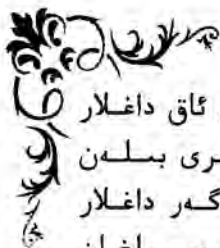 ئاق داغلار
ـرى بىلەن
ـگەر داغلار